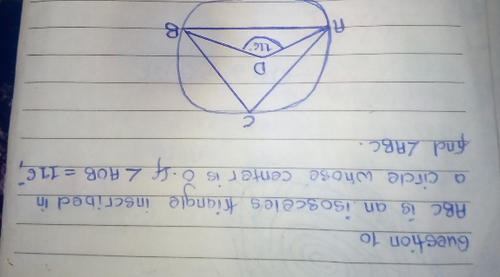 Question 10
ABC is an isosceles triangle inscribed in
a circle whose center is O. If ∠AOB = 116°,
find ∠ABC.
C
O
116°
A
B